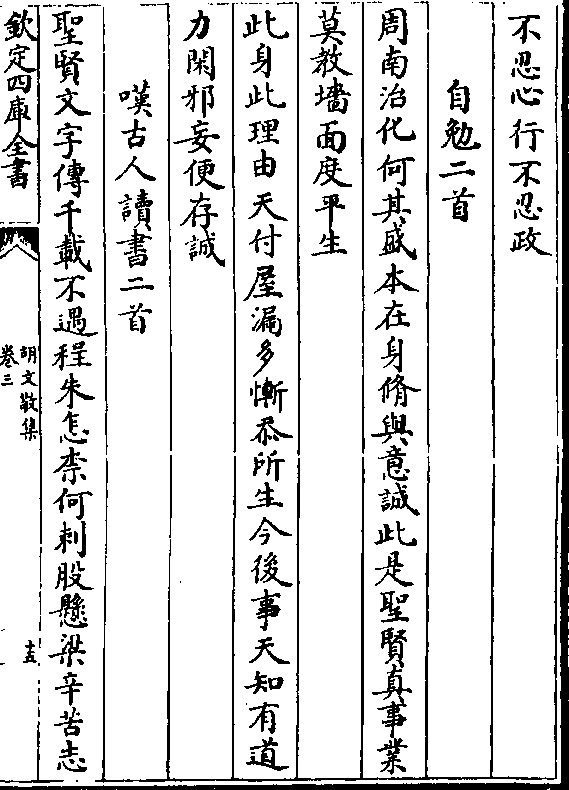 不忍心行不忍政
自勉二首
周南治化何其盛本在身脩與意誠此是聖賢真事業
莫教墻面度平生
此身此理由天付屋漏多慚忝所生今後事天知有道
力閑邪妄便存誠
嘆古人讀書二首
聖賢文字傳千載不遇程朱怎柰何刺股懸梁辛苦志
欽定四庫全書
胡文敬集
卷三
十五